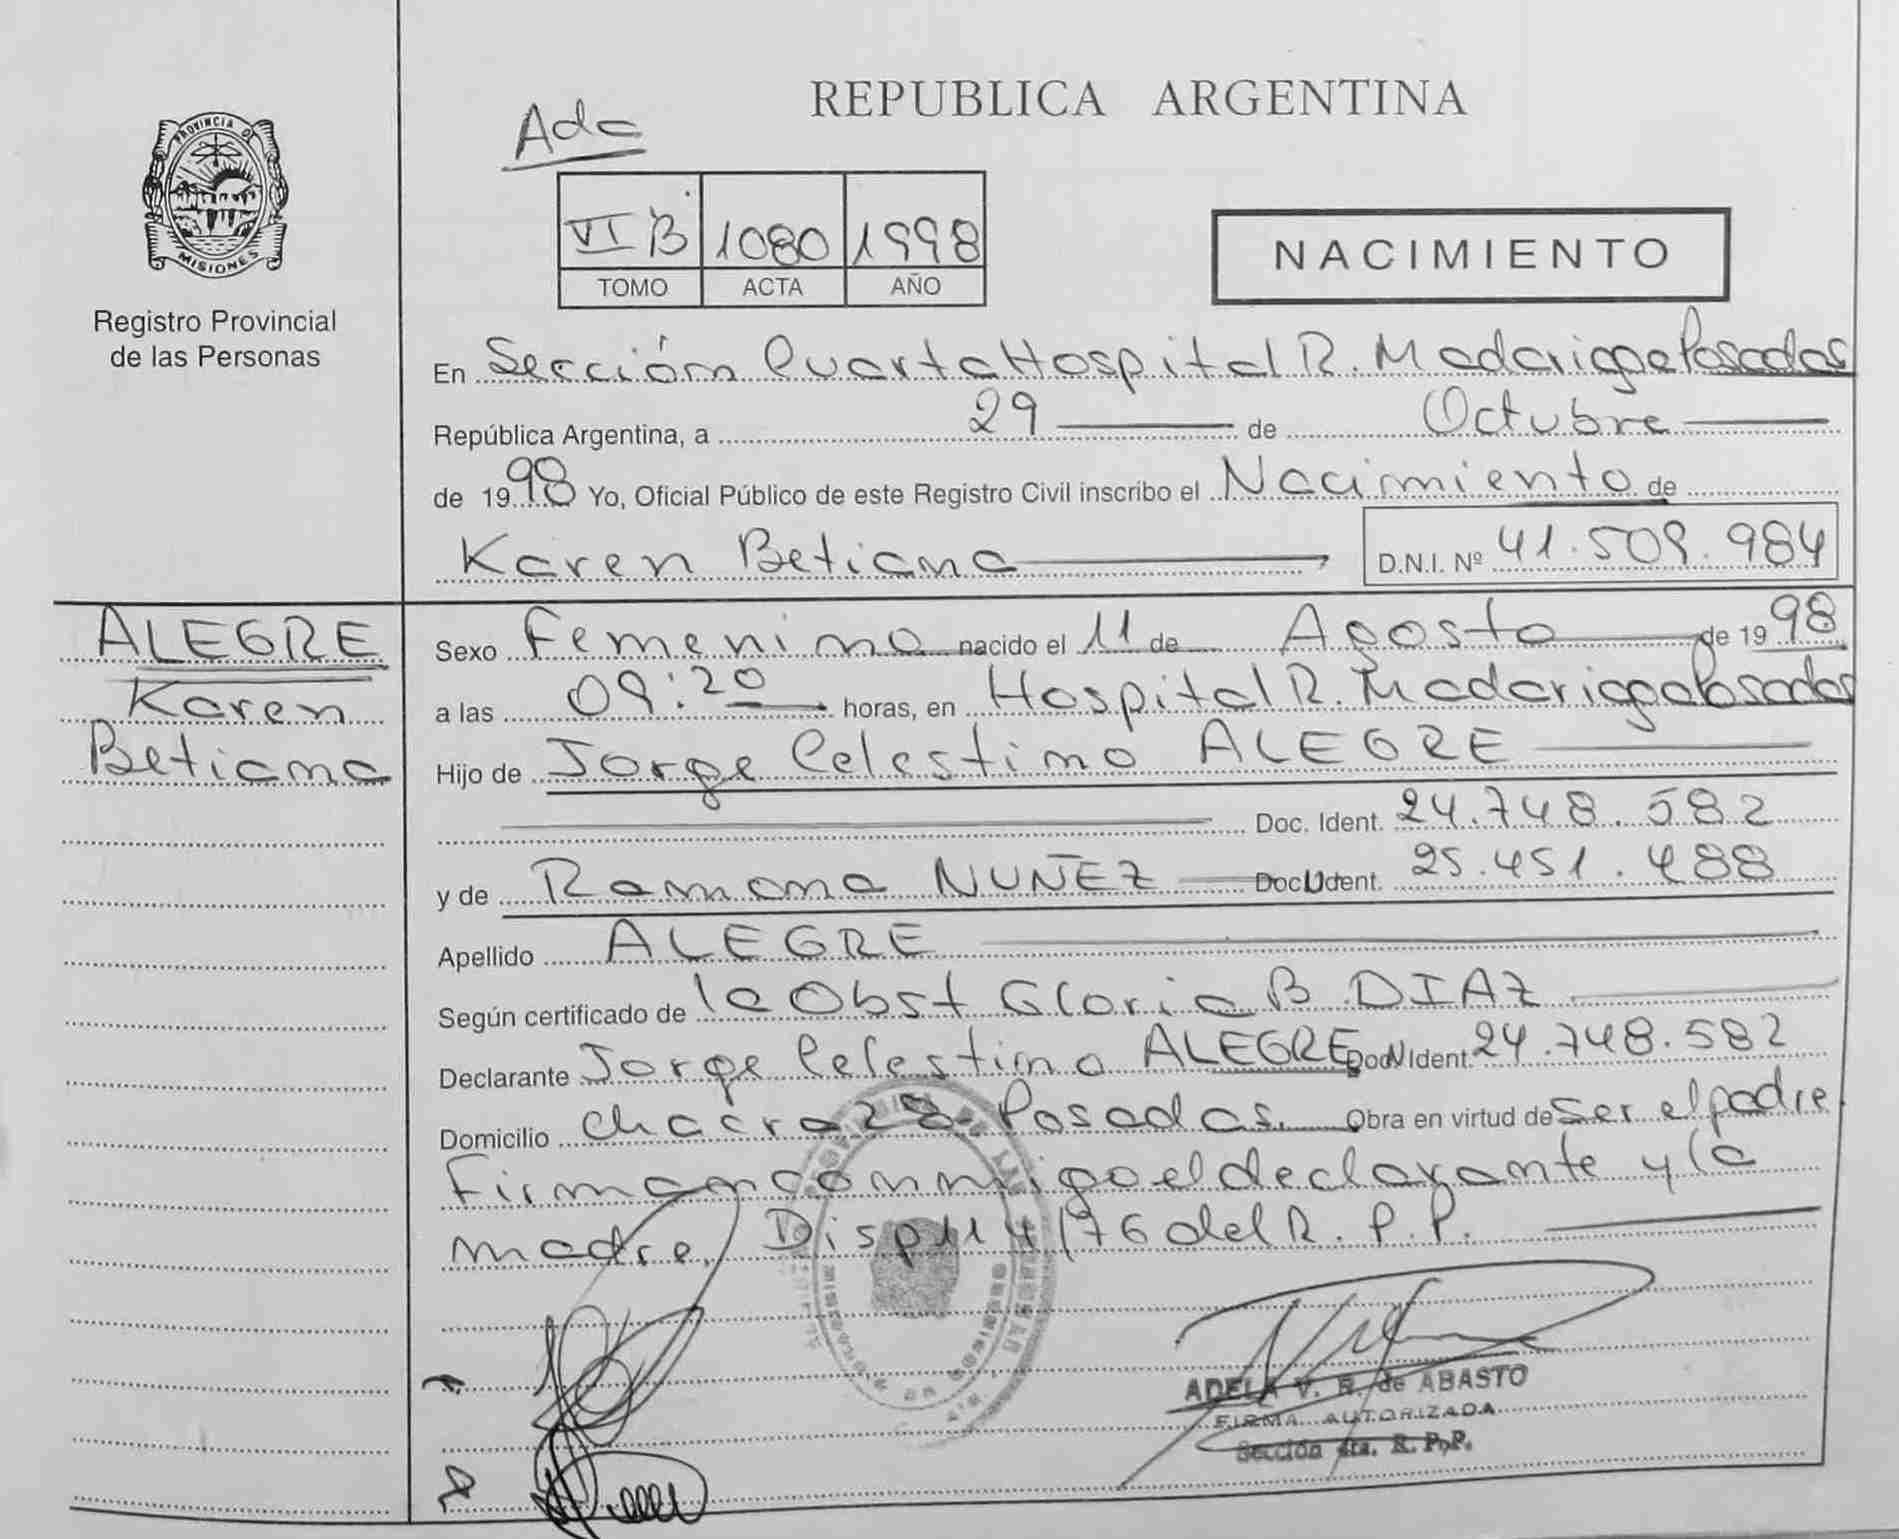 PROVINCIA DE
MISIONES
Registro Provincial
de las Personas
REPUBLICA ARGENTINA
Ada
VI B 1080 1998
TOMO ACTA AÑO
NACIMIENTO
En Sección Cuarta Hospital R. Madariaga Posadas
República Argentina, a 29 de Octubre
de 1998 Yo, Oficial Público de este Registro Civil inscribo el Nacimiento de
Karen Betiana D.N.I. Nº 41.509.984
ALEGRE
Karen
Betiana
Sexo Femenino nacido el 11 de Agosto de 1998
a las 09:20 horas, en Hospital R. Madariaga Posadas
Hijo de Jorge Celestino ALEGRE
Doc. Ident. 24.748.582
y de Ramona NUÑEZ Doc. Ident. 25.451.488
Apellido ALEGRE
Según certificado de la Obst Gloria B DIAZ
Declarante Jorge Celestino ALEGRE Doc. Ident. 24.748.582
Domicilio Chacra 28 Posadas. Obra en virtud de ser el padre
Firman conmigo el declarante y la
madre, Disp 114/76 del R. P. P.
ADELA V. R. de ABASTO
FIRMA AUTORIZADA
Sección 4ta. R. P. P.